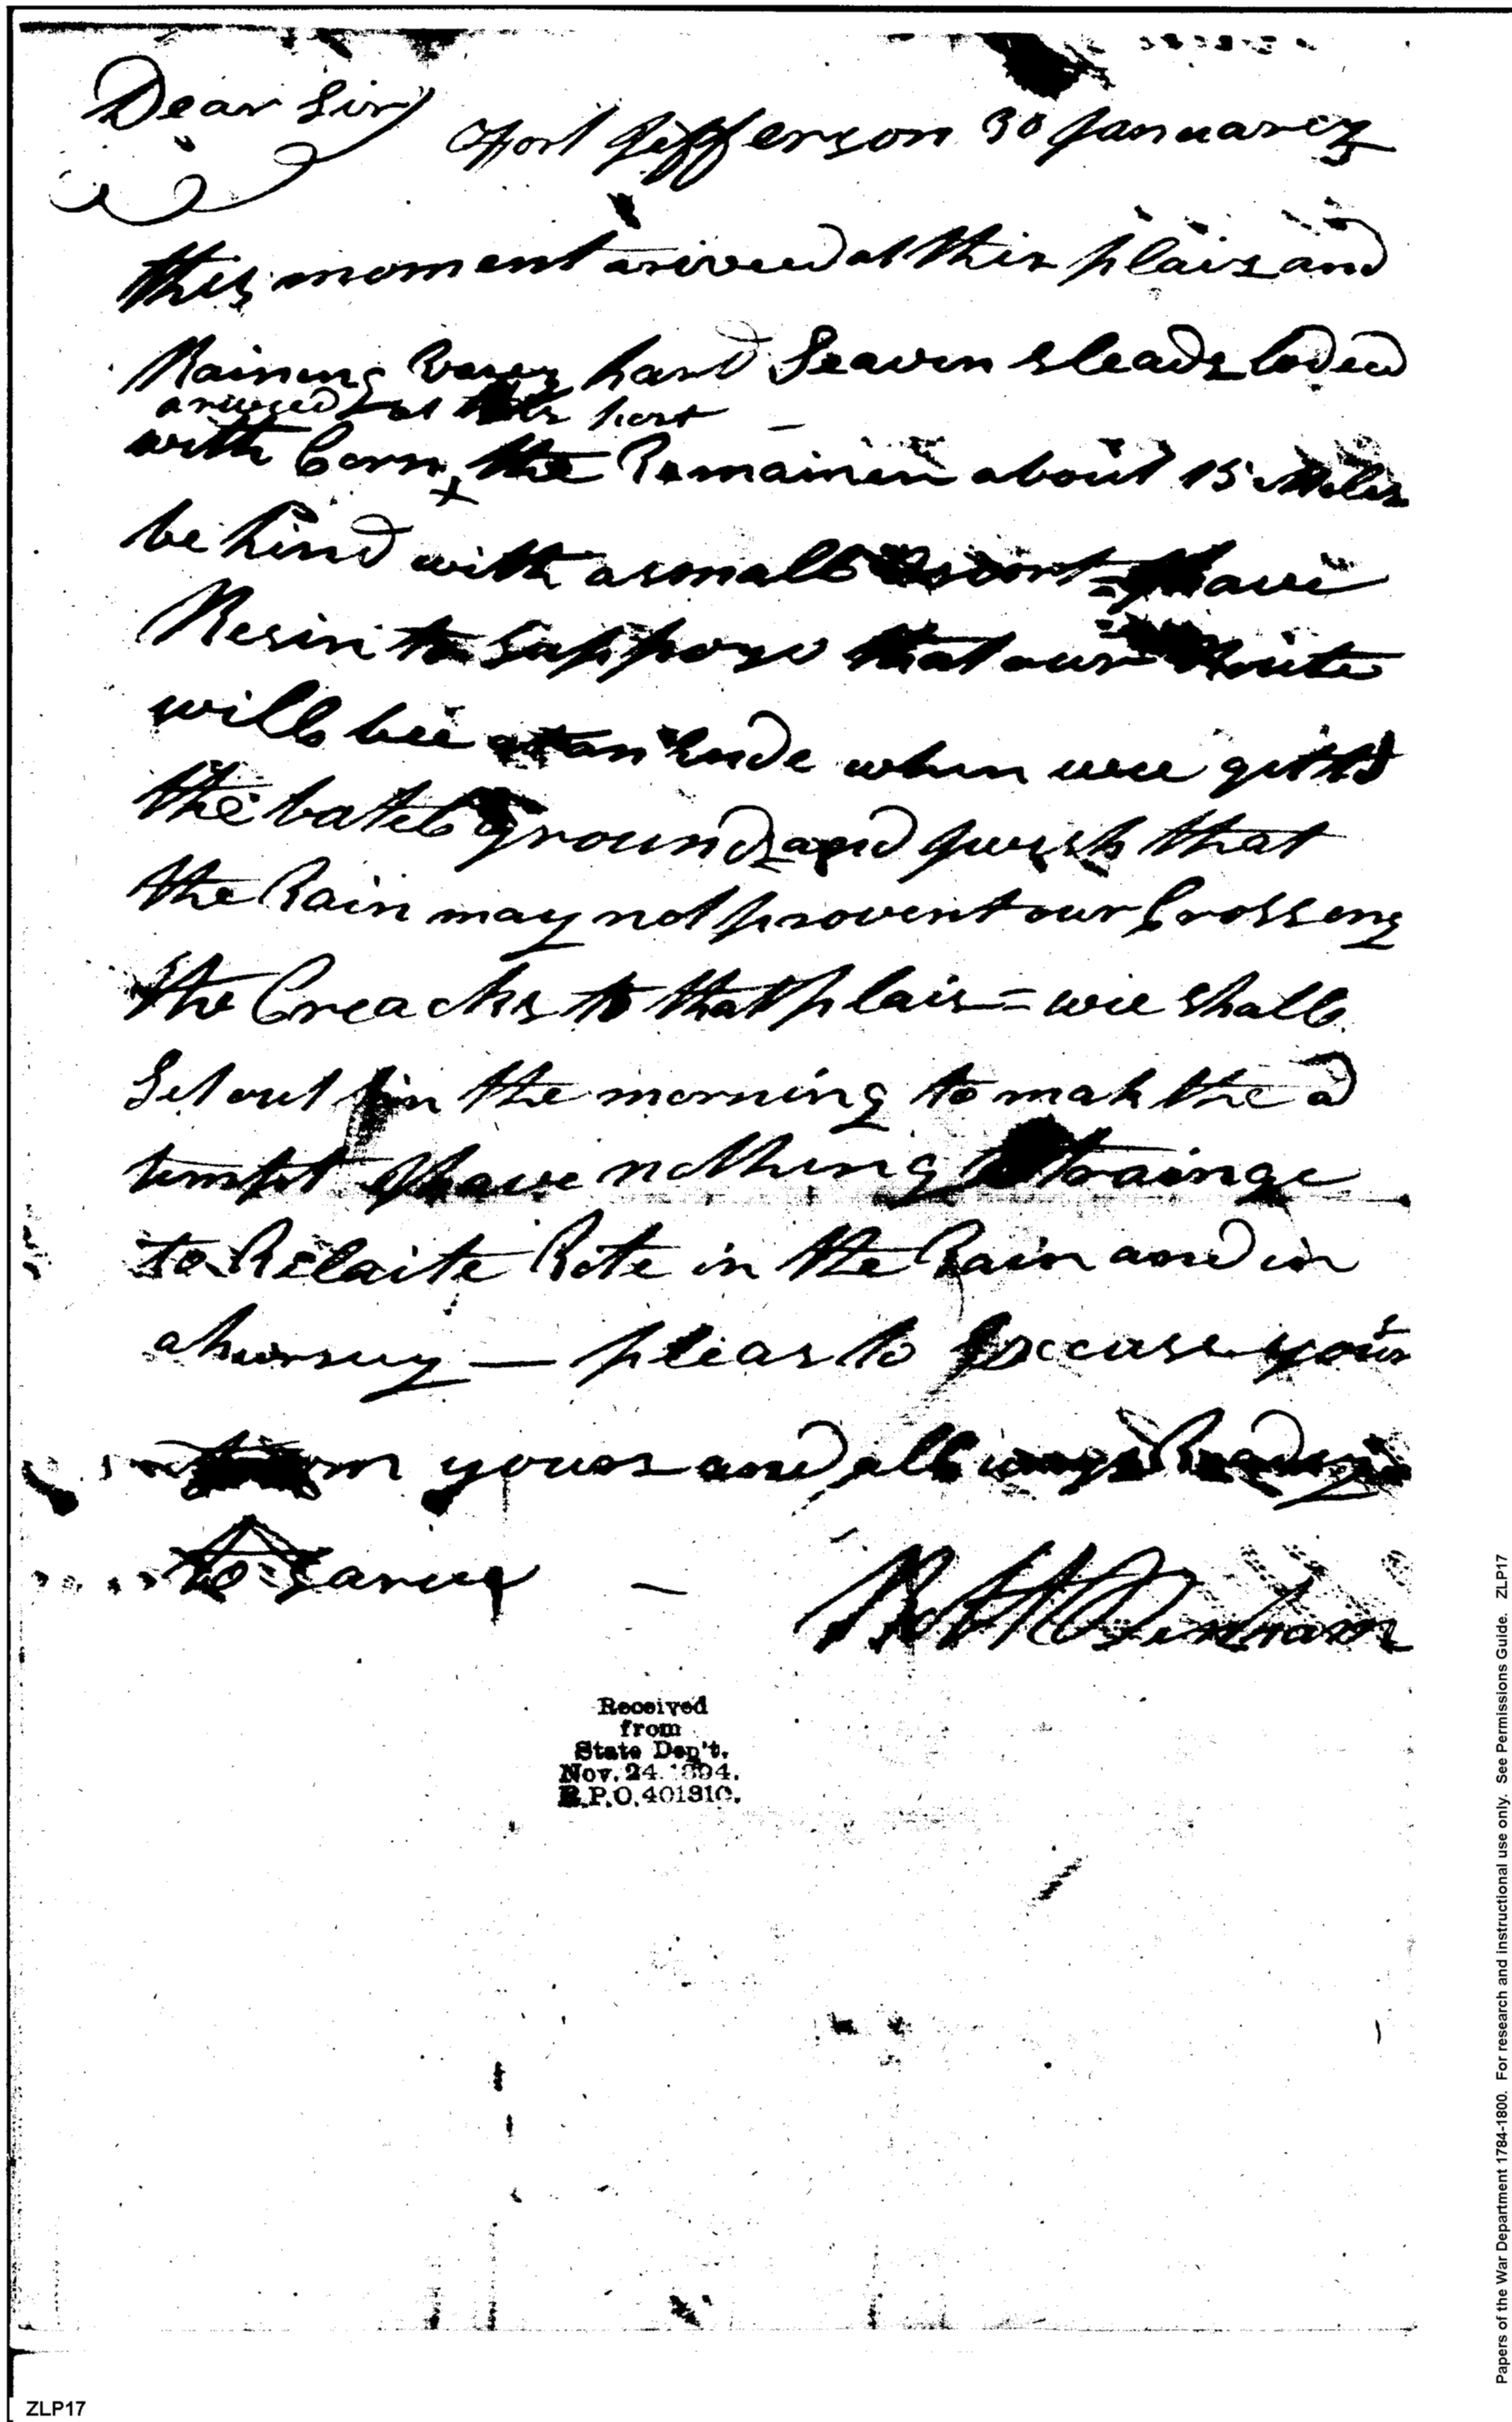 Dear Sir
Fort Jefferson 30 Januarey
this moment arived at this plais and
Raining varey hard Seaven sleads loded
arived at this port
with Corn x the Remainen about 15 Miles
be hind with a small Escort = I have
Resin to suppose that our Route
will bee at an Ende when wee git to
the batel ground and I wish that
the Rain may not provent our Crossing
the Creacks to that plais = wee shall
Set out in the morning to mak the a
tempt I have nothing Strainge
to Relaite Rote in the Rain and in
a hurrey — pleas to Excuse
yours and all ways Ready
to Sarve —
Robt Benham
Received
from
State Dep't.
Nov. 24. 1894.
R.P.O. 401310.
Papers of the War Department 1784-1800. For research and instructional use only. See Permissions Guide. ZLP17
ZLP17